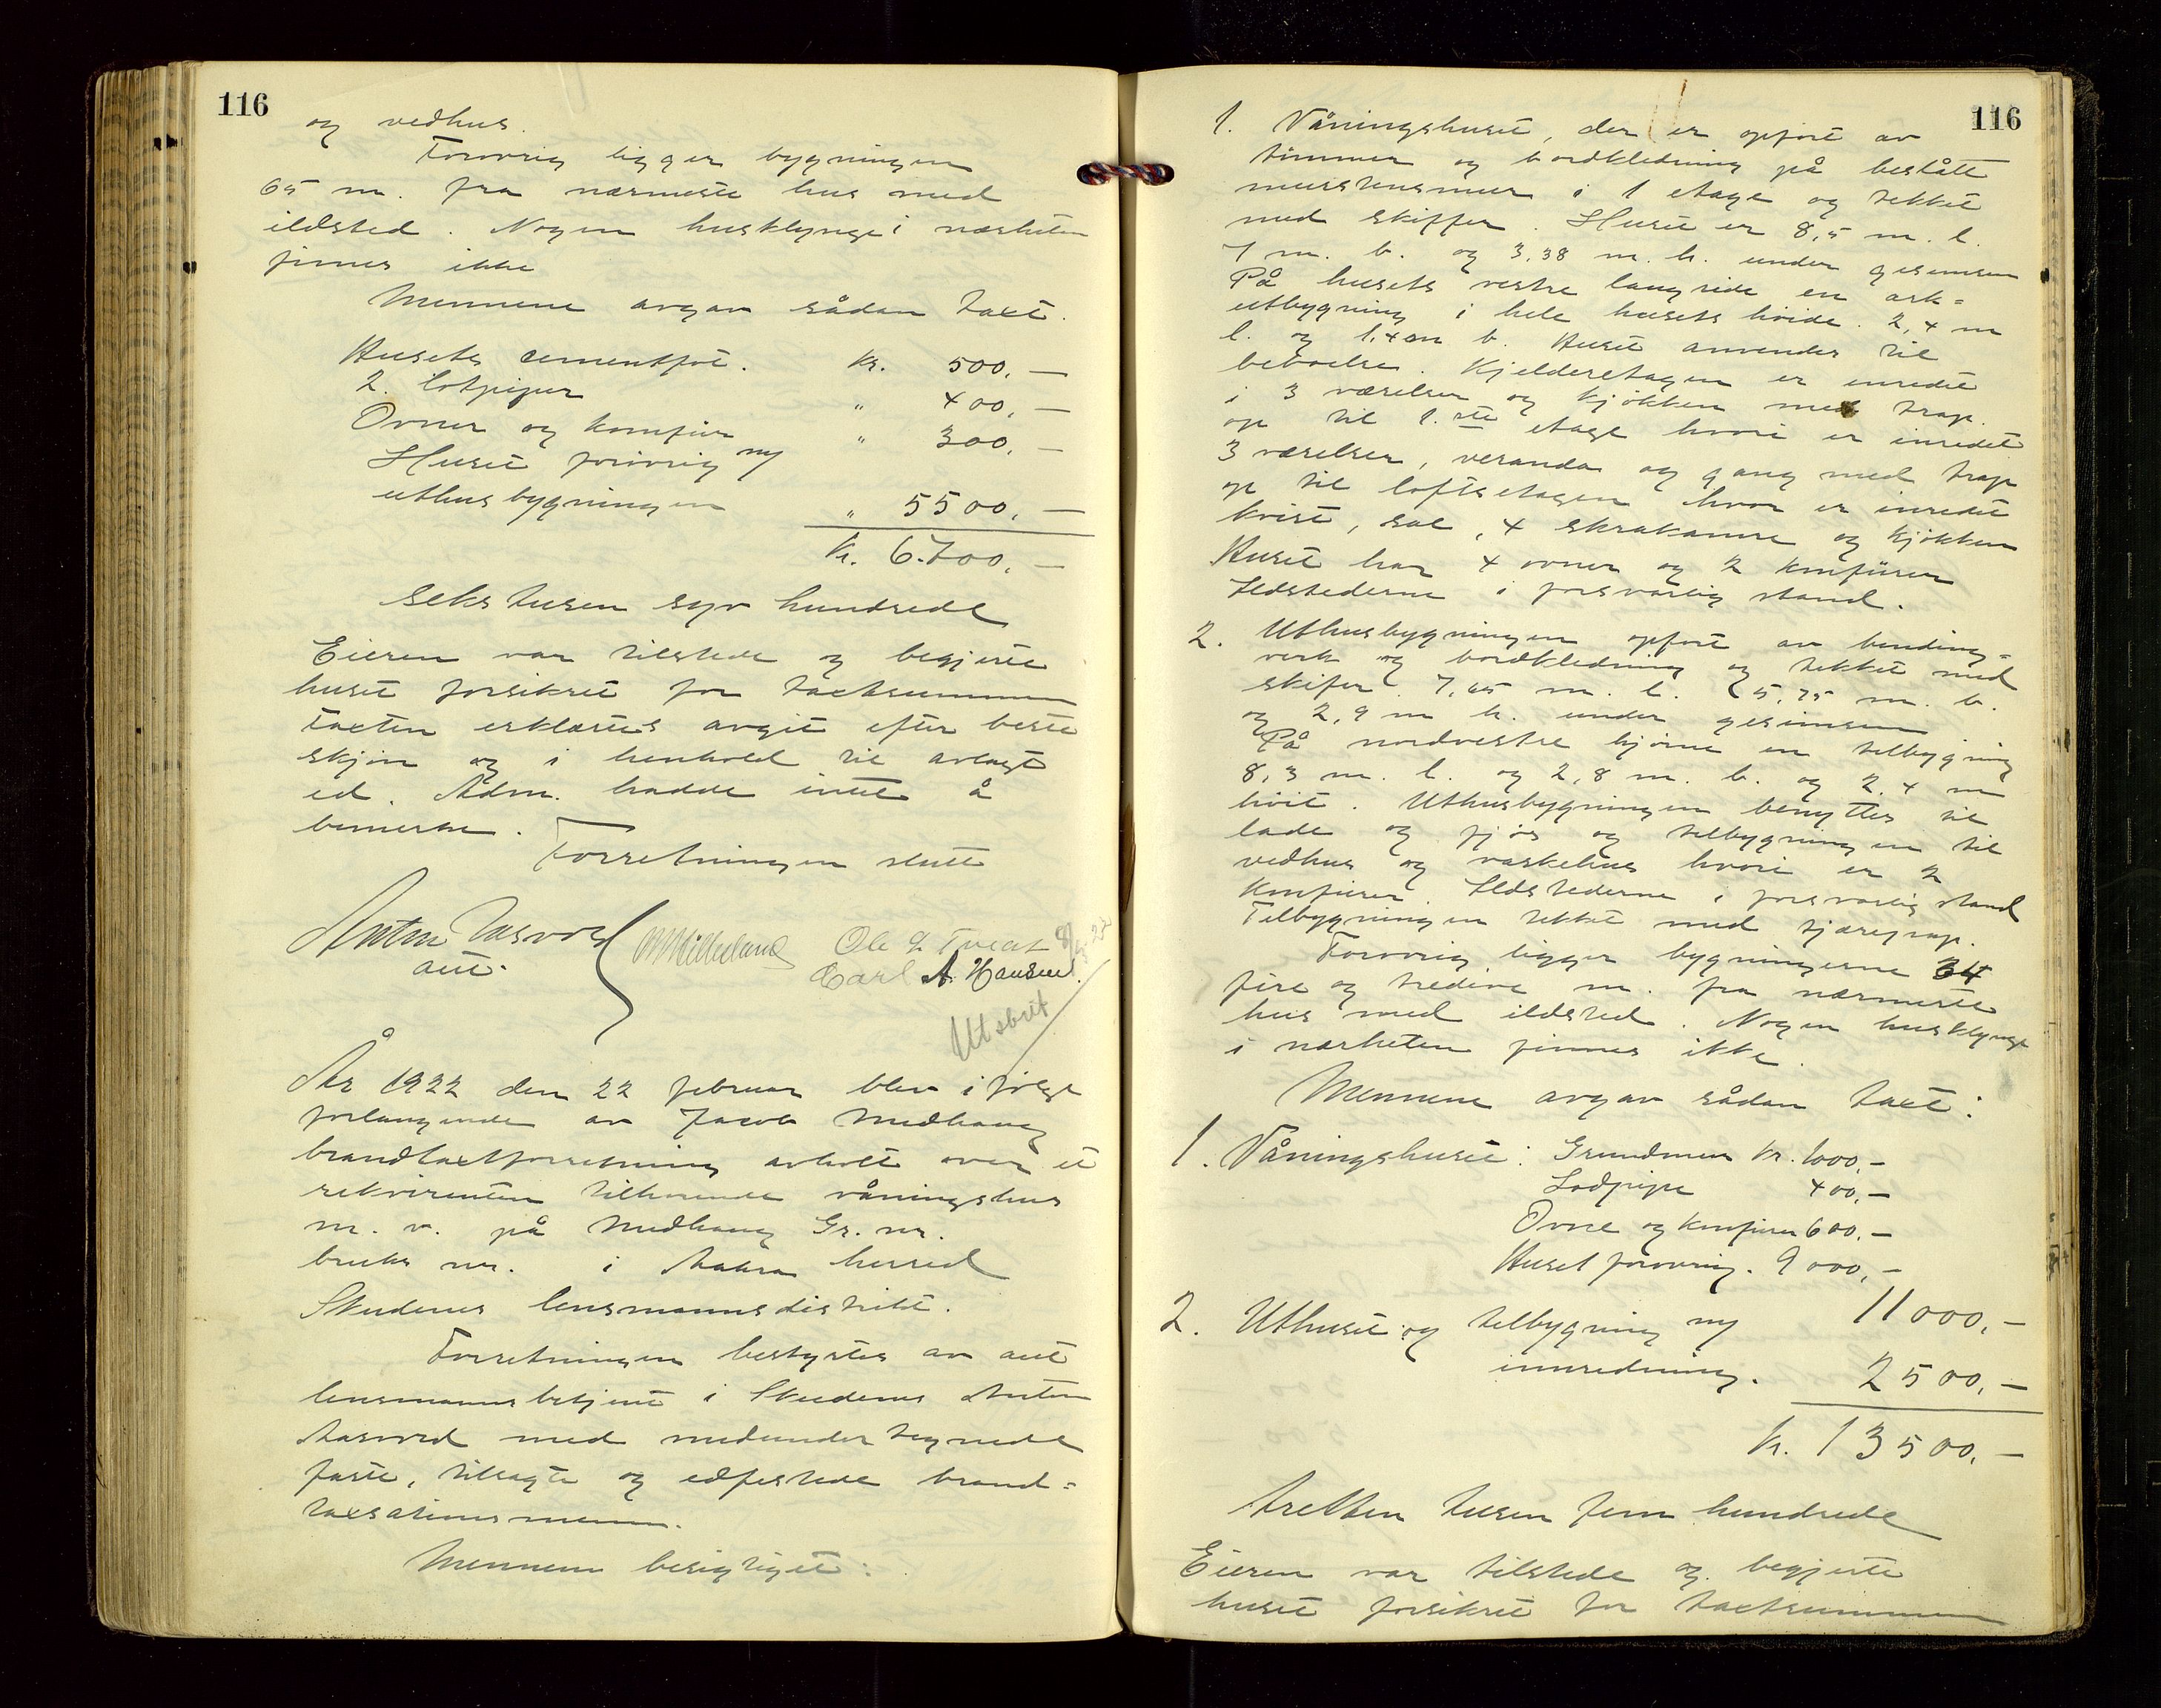 116
og vedhus.
Forøvrig ligger bygningen
65 m. fra nærmeste hus med
ildsted. Nogen husklynge i nærheten
finnes ikke
Mennene avgav sådan taxt.
Husets cementfot. kr. 500,-
2. lotpiper " 400,-
Ovner og komfür " 300,-
Huset forøvrig og
uthusbygningen " 5500,-
kr. 6.700,-
seks tusen syv hundrede
Eieren var tilstede og begjerte
huset forsikret for taxtsummen
Taxten erklærtes avgit efter beste
skjøn og i henhold til avlagt
ed. Adm. hadde intet å
bemerke.
Forretningen slutt
Anton Aasvold Ole G. Tveit
aut. Carl A. Hansen.
Utskrit
År 1922 den 22 februar blev ifølge
forlangende av Jacob Medhaug
brandtaxtforretning avholt over et
rekvirenten tilhørende våningshus
m. v. på Medhaug Gr. nr.
bruks nr. i Aakra herred
Skudenes lensmannsdistrikt.
Forretningen bestyrtes av aut
lensmannsbetjent i Skudenes Anton
Aasvold med medundertegnede
faste, tilsagte og edfestede brand-
taxsationsmenn.
Mennene besigtiget:
116
1. Våningshuset, der er opført av
tømmer og bordkledning på beslått
murstensmur i 1 etage og tekket
med skiffer. Huset er 8,5 m. l.
7 m. b. og 3,38 m. h. under gesimsen
På husets vestre langside en ark-
utbygning i hele husets høide. 2,4 m
l. og 1,4 m b. Huset anvendes til
beboelse. Kjelderetagen er inredet
i 3 værelser og kjøkken med trap.
op til 1.ste etage hvori er inredet
3 værelser, veranda og gang med trap
op til loftsetagen hvor er inredet
kvist, sal, 4 skrakamre og kjøkken
Huset har 4 ovner og 2 komfürer
Ildstederne i forsvarlig stand.
2. Uthusbygningen opført av binding-
verk og bordkledning og tekket med
skifer. 7,65 m. l. 5,75 m. b.
og 2,9 m h. under gesimsen
På nordvestre hjørne en tilbygning
8,3 m. l. og 2,8 m. b. og 2,4 m
høit. Uthusbygningen benyttes til
lade og fjøs og tilbygningen til
vedhus og vaskehus hvori er 2
komfürer. Ildstederne i forsvarlig stand
Tilbygningen tekket med tjærepap.
Forøvrig ligger bygningerne 34
fire og tredive m. fra nærmeste
hus med ildsted. Nogen husklynge
i nærheten finnes ikke.
Mennene avgav sådan taxt:
1. Våningshuset: Grundmur kr. 1000,-
Lodpipe 400,-
Ovne og komfürer 600,-
Huset forøvrig. 9000,-
11000,-
2. Uthuset og tilbygning og
innredning. 2500,-
kr. 13500,-
tretten tusen fem hundrede
Eieren var tilstede og begjerte
huset forsikret for taxtsummen